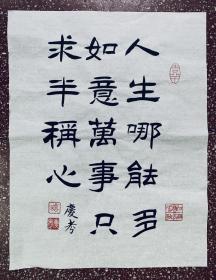 人生哪能多
如意萬事只
求半稱心
慶孝